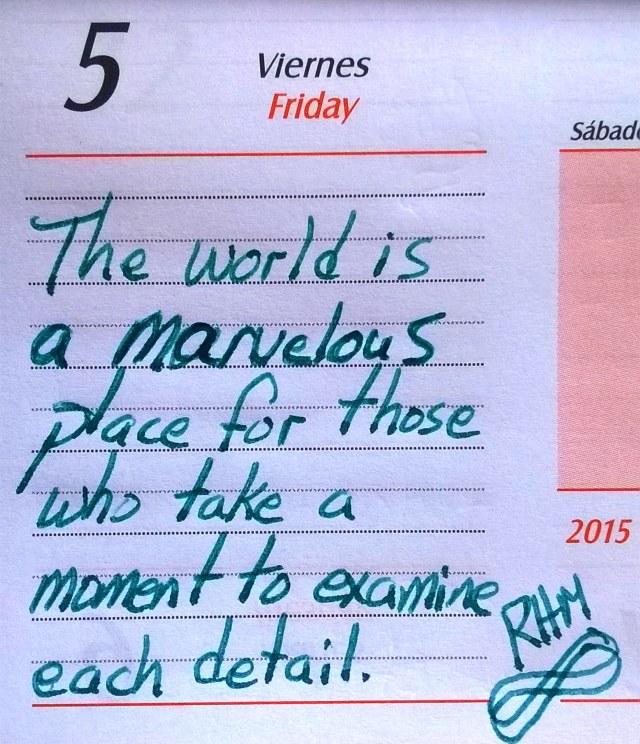 5
Viernes
Friday
Sábado
The world is
a marvelous
place for those
who take a
moment to examine
each detail.
2015
RHM